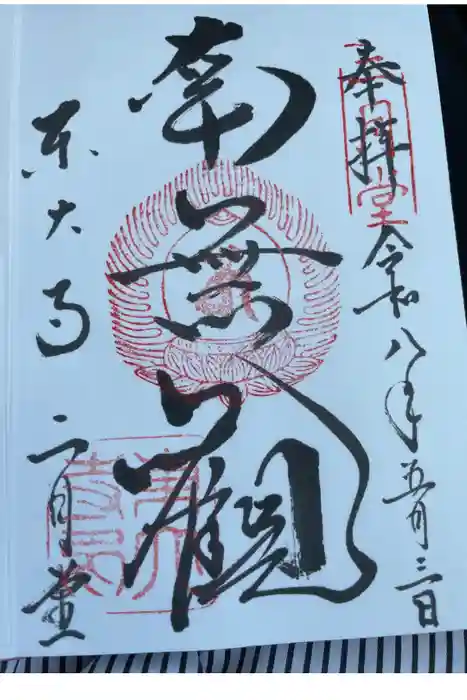 奉拝
令和八年五月三日
南無観
東大寺
二月堂